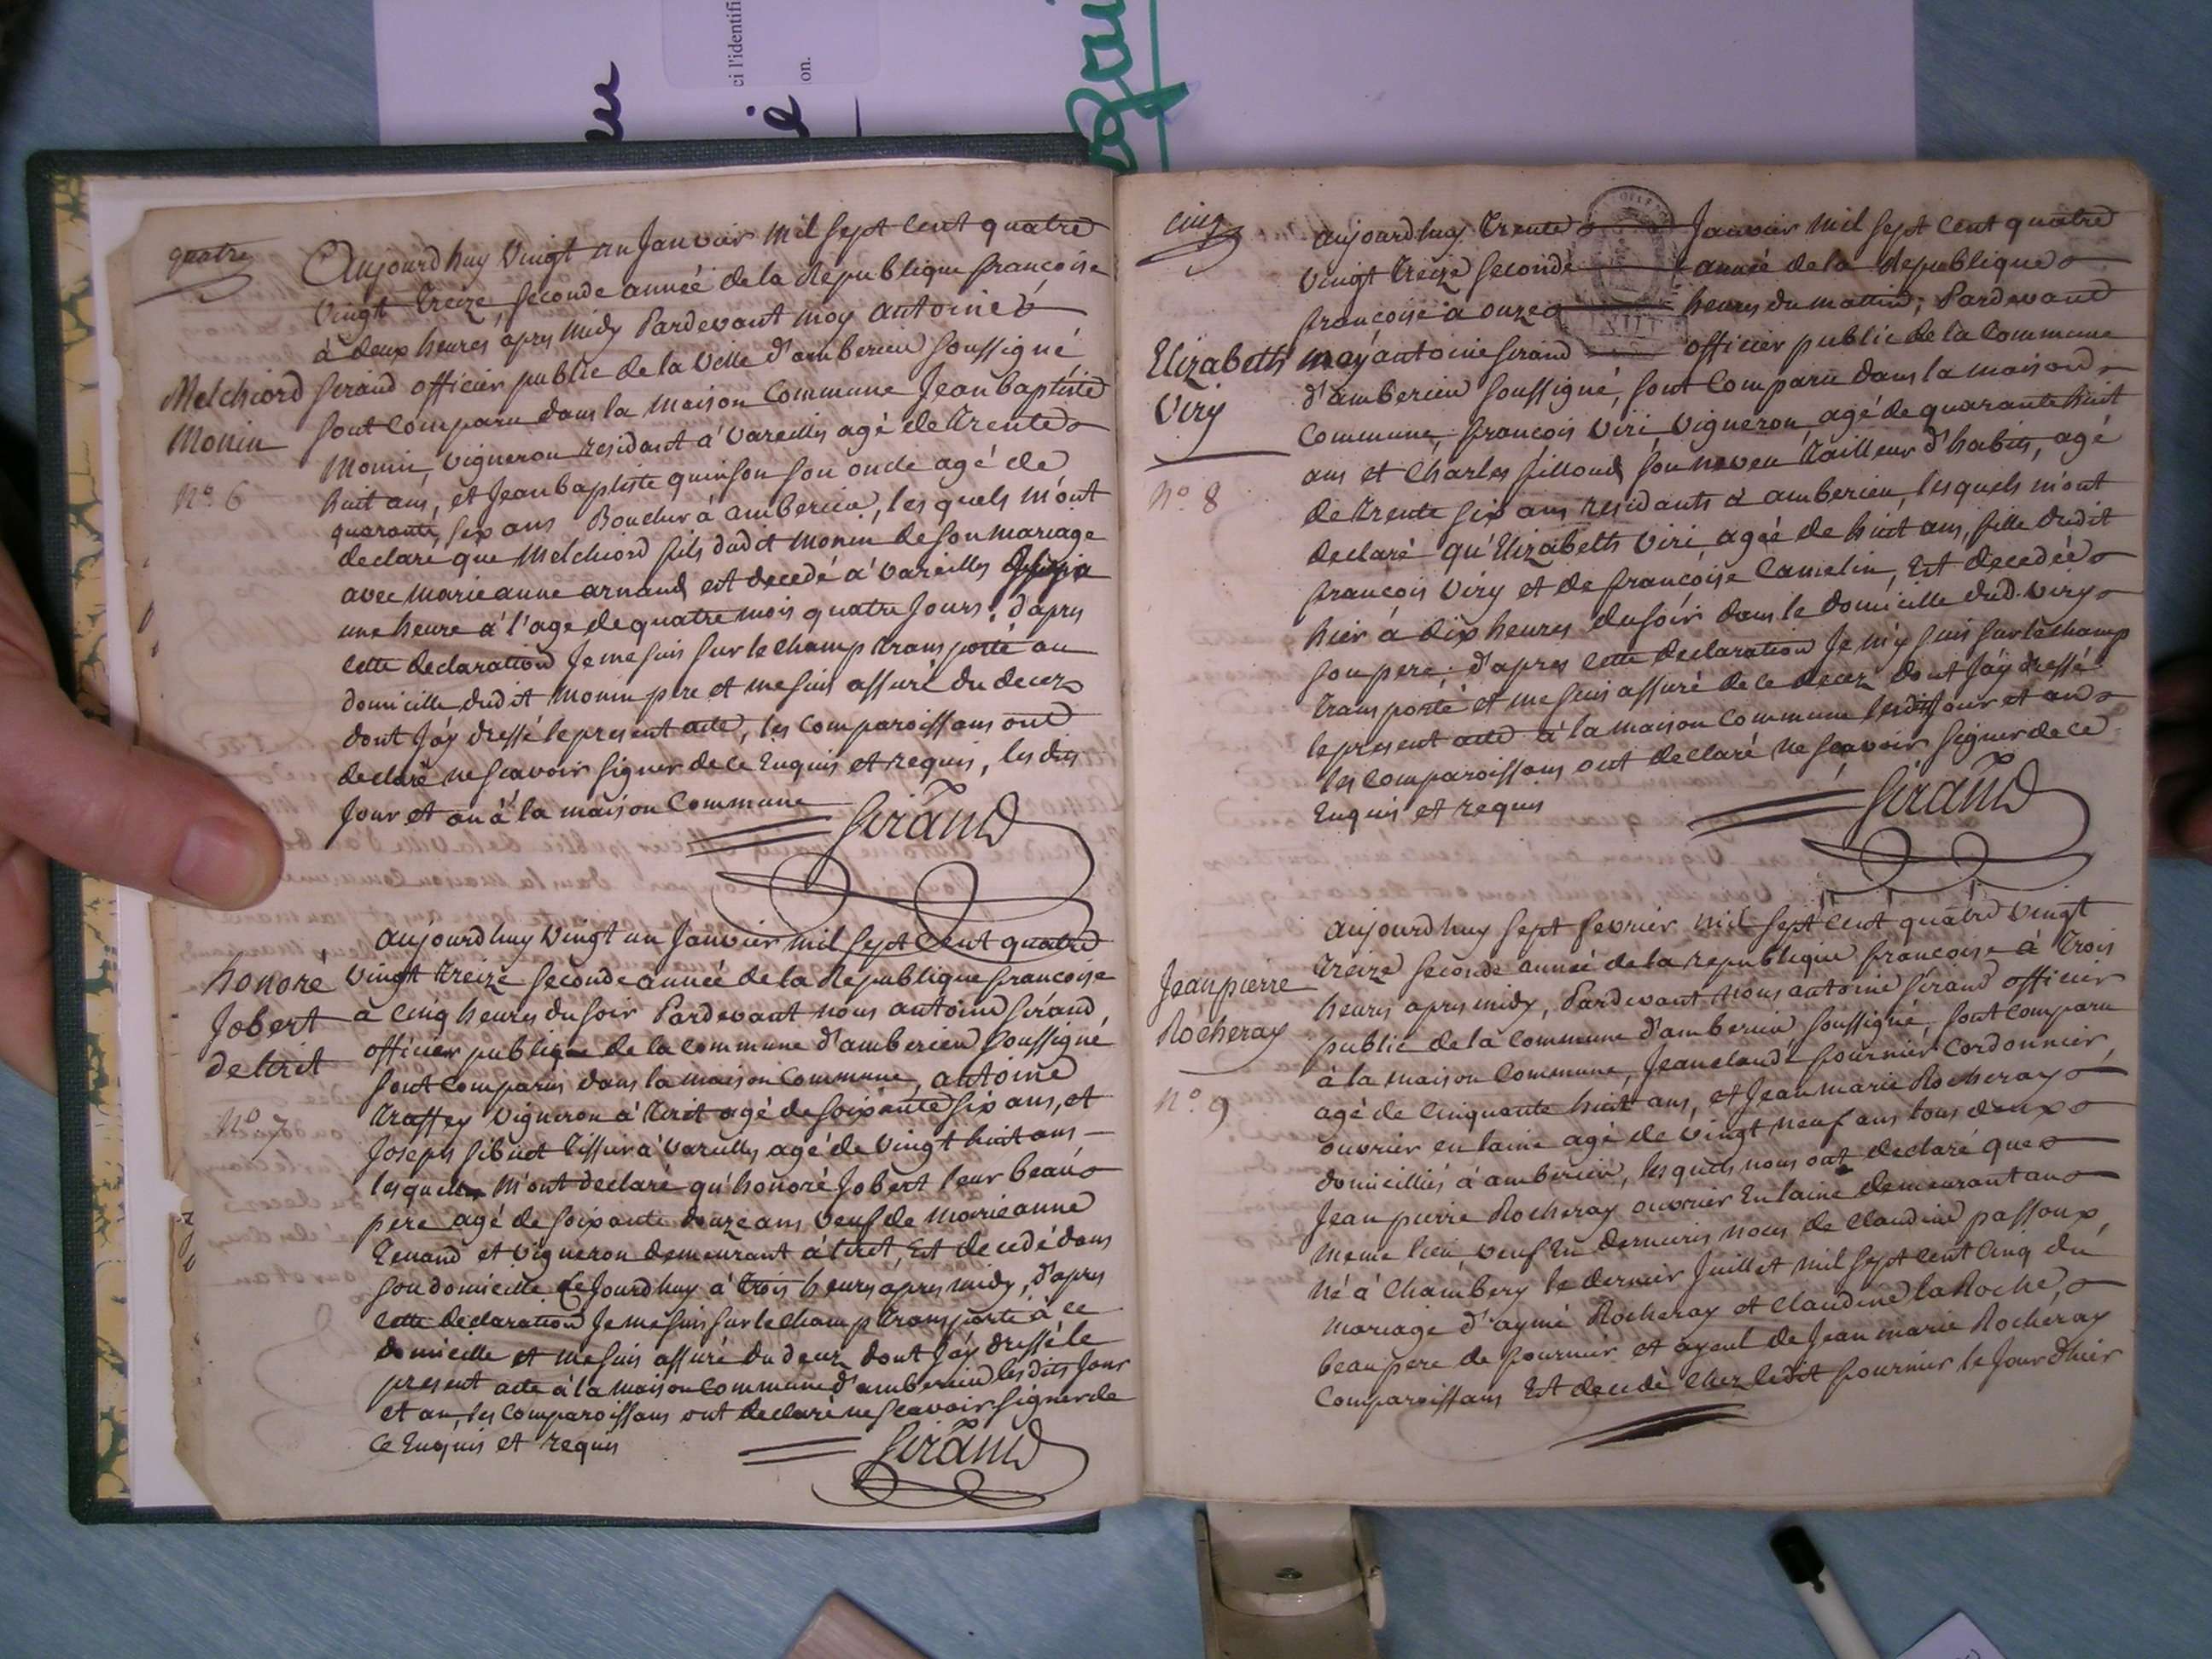 ci l'identifi
on.
quatre
Aujourdhuy Vingt un Janvier Mil Sept Cent quatre
Vingt treize, seconde année de la République francoise
à deux heures apres midy Pardevant moy Antoine
Girand officier public de la Ville d'amberieu soussigné
Melchiord
Monin
N.o 6
sont comparu dans la maison Commune Jean baptiste
Monin, Vigneron residant à Vareilles agé de trente
huit ans, et Jean baptiste quinson son oncle agé de
quarante six ans Boucher à amberieu, les quels m'ont
declaré que Melchiord fils dudit Monin de son mariage
avec marie anne arnaud est decedé à vareilles
une heure à l'age de quatre mois quatre Jours; d'apres
cette declaration Je me suis sur le champ transporté au
domicille dudit Monin pere et me suis assuré du decez
dont J'áy dressé le present acte, les comparoissans ont
declaré ne scavoir signer de ce Enquis et requis, les dits
Jour et an à la maison Commune
Girand
aujourdhuy Vingt un Janvier mil sept Cent quatre
honoré
Jobert
de tiret
N.o 7
vingt treize seconde année de la République francoise
a cinq heures du soir Pardevant nous antoine Girand,
officier publique de la commune d'amberieu soussigné
sont comparus dans la maison Commune, antoine
traffey Vigneron à tiret agé de soixante six ans, et
Joseph Sibuet tissier à Vareilles agé de vingt huit ans
lesquels m'ont declaré qu'honoré Jobert leur beau
pere agé de soixante douze ans veuf de Marie anne
Renand et vigneron demeurant à tiret Est decedé dans
son domicille ce Jourdhuy à trois heures apres midy, d'apres
cette declaration Je me suis sur le champ transporté à ce
domicille et me suis assuré du decez dont J'áy dressé le
present acte à la maison commune d'amberieu les dits Jour
et an, les Comparoissans ont declaré ne scavoir signer de
Ce Enquis et requis
Girand
cinq
aujourdhuy trente Janvier mil sept Cent quatre
vingt treize seconde année de la Republique
francoise à onze heures du matin; Pardevant
Elizabeth
Viry
N.o 8
moy antoine Girand officier public de la Commune
d'amberieu soussigné, sont Comparu dans la maison
Commune, francois Viri Vigneron, agé de quarante huit
ans et Charles fillond son neveu tailleur d'habits, agé
de trente six ans residants à amberieu, lesquels m'ont
declaré qu'Elizabeth Viri, agée de huit ans, fille dudit
francois Viry et de francoise Camelin, Est decedée
hier à dix heures du soir dans le domicille dud. viry
son pere; d'apres cette declaration Je m'y suis sur le champ
transporté et me suis assuré de ce decez dont J'áy dressé
le present acte à la maison Commune lesdits Jour et an
les Comparoissans ont declaré ne scavoir signer de ce
Enquis et requis
Girand
aujourdhuy sept fevrier mil sept cent quatre vingt
treize seconde année de la republique francoise à trois
Jean pierre
Rocheray
N.o 9
heures apres midy, Pardevant Nous antoine Girand officier
public de la Commune d'amberieu soussigné, sont comparu
à la maison Commune, Jean claude fournier Cordonnier,
agé de Cinquante huit ans, et Jean marie Rocheray
ouvrier en laine agé de vingt neuf ans tous deux
domicilliés à amberieu, lesquels nous ont declaré que
Jean pierre Rocheray ouvrier En laine demeurant au
meme lieu, veuf En dernieres noces de Claudine passoux,
né à Chambery le dernier Juillet mil sept cent cinq du
mariage d'aymé Rocheray et Claudine la Roche,
beau pere de fournier et ayeul de Jean marie Rocheray
Comparoissans Est decedé chez ledit fournier le Jour dhier